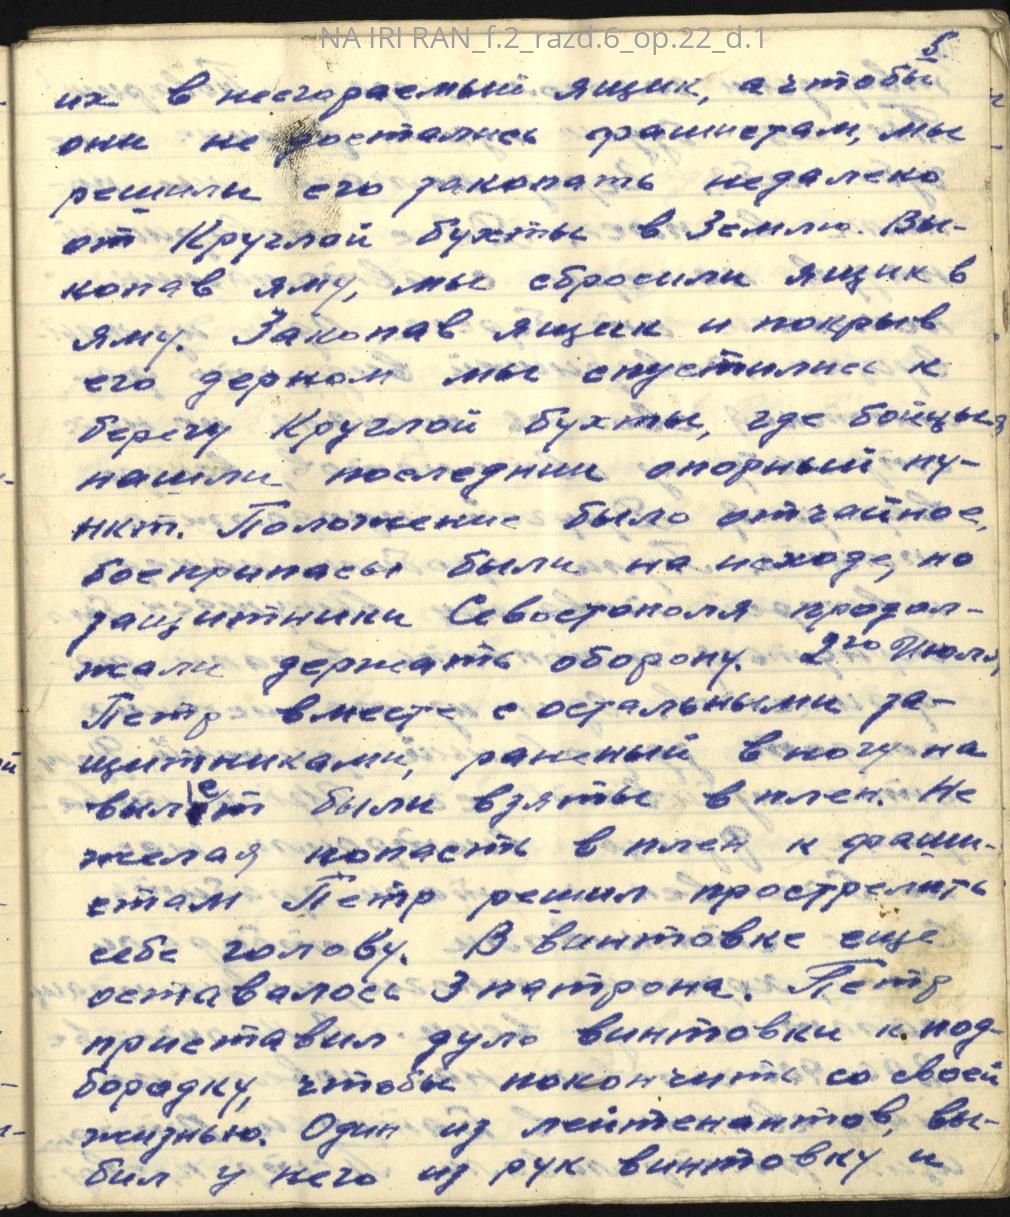 NA IRI RAN_f.2_razd.6_op.22_d.1
5
их в несгораемый ящик, а чтобы
они не достались фашистам, мы
решили его закопать недалеко
от Круглой бухты в Землю. Вы-
копав яму, мы сбросили ящик в
яму. Закопав ящик и покрыв
его дерном мы спустились к
берегу Круглой бухты, где бойцы
нашли последний опорный пу-
нкт. Положение было отчайное,
боеприпасы были на исходе, но
защитники Севостополя продол-
жали держать оборону. 2го Июля,
Петр вместе с остальными за-
щитниками, раненый в ногу на
вылет были взяты в плен. Не
желая попасть в плен к фаши-
стам Петр решил прострелить
себе голову. В винтовке еще
оставалось 3 патрона. Петр
приставил дуло винтовки к под-
бородку, чтобы покончить со своей
жизнью. Один из лейтенантов, вы-
бил у него из рук винтовку и